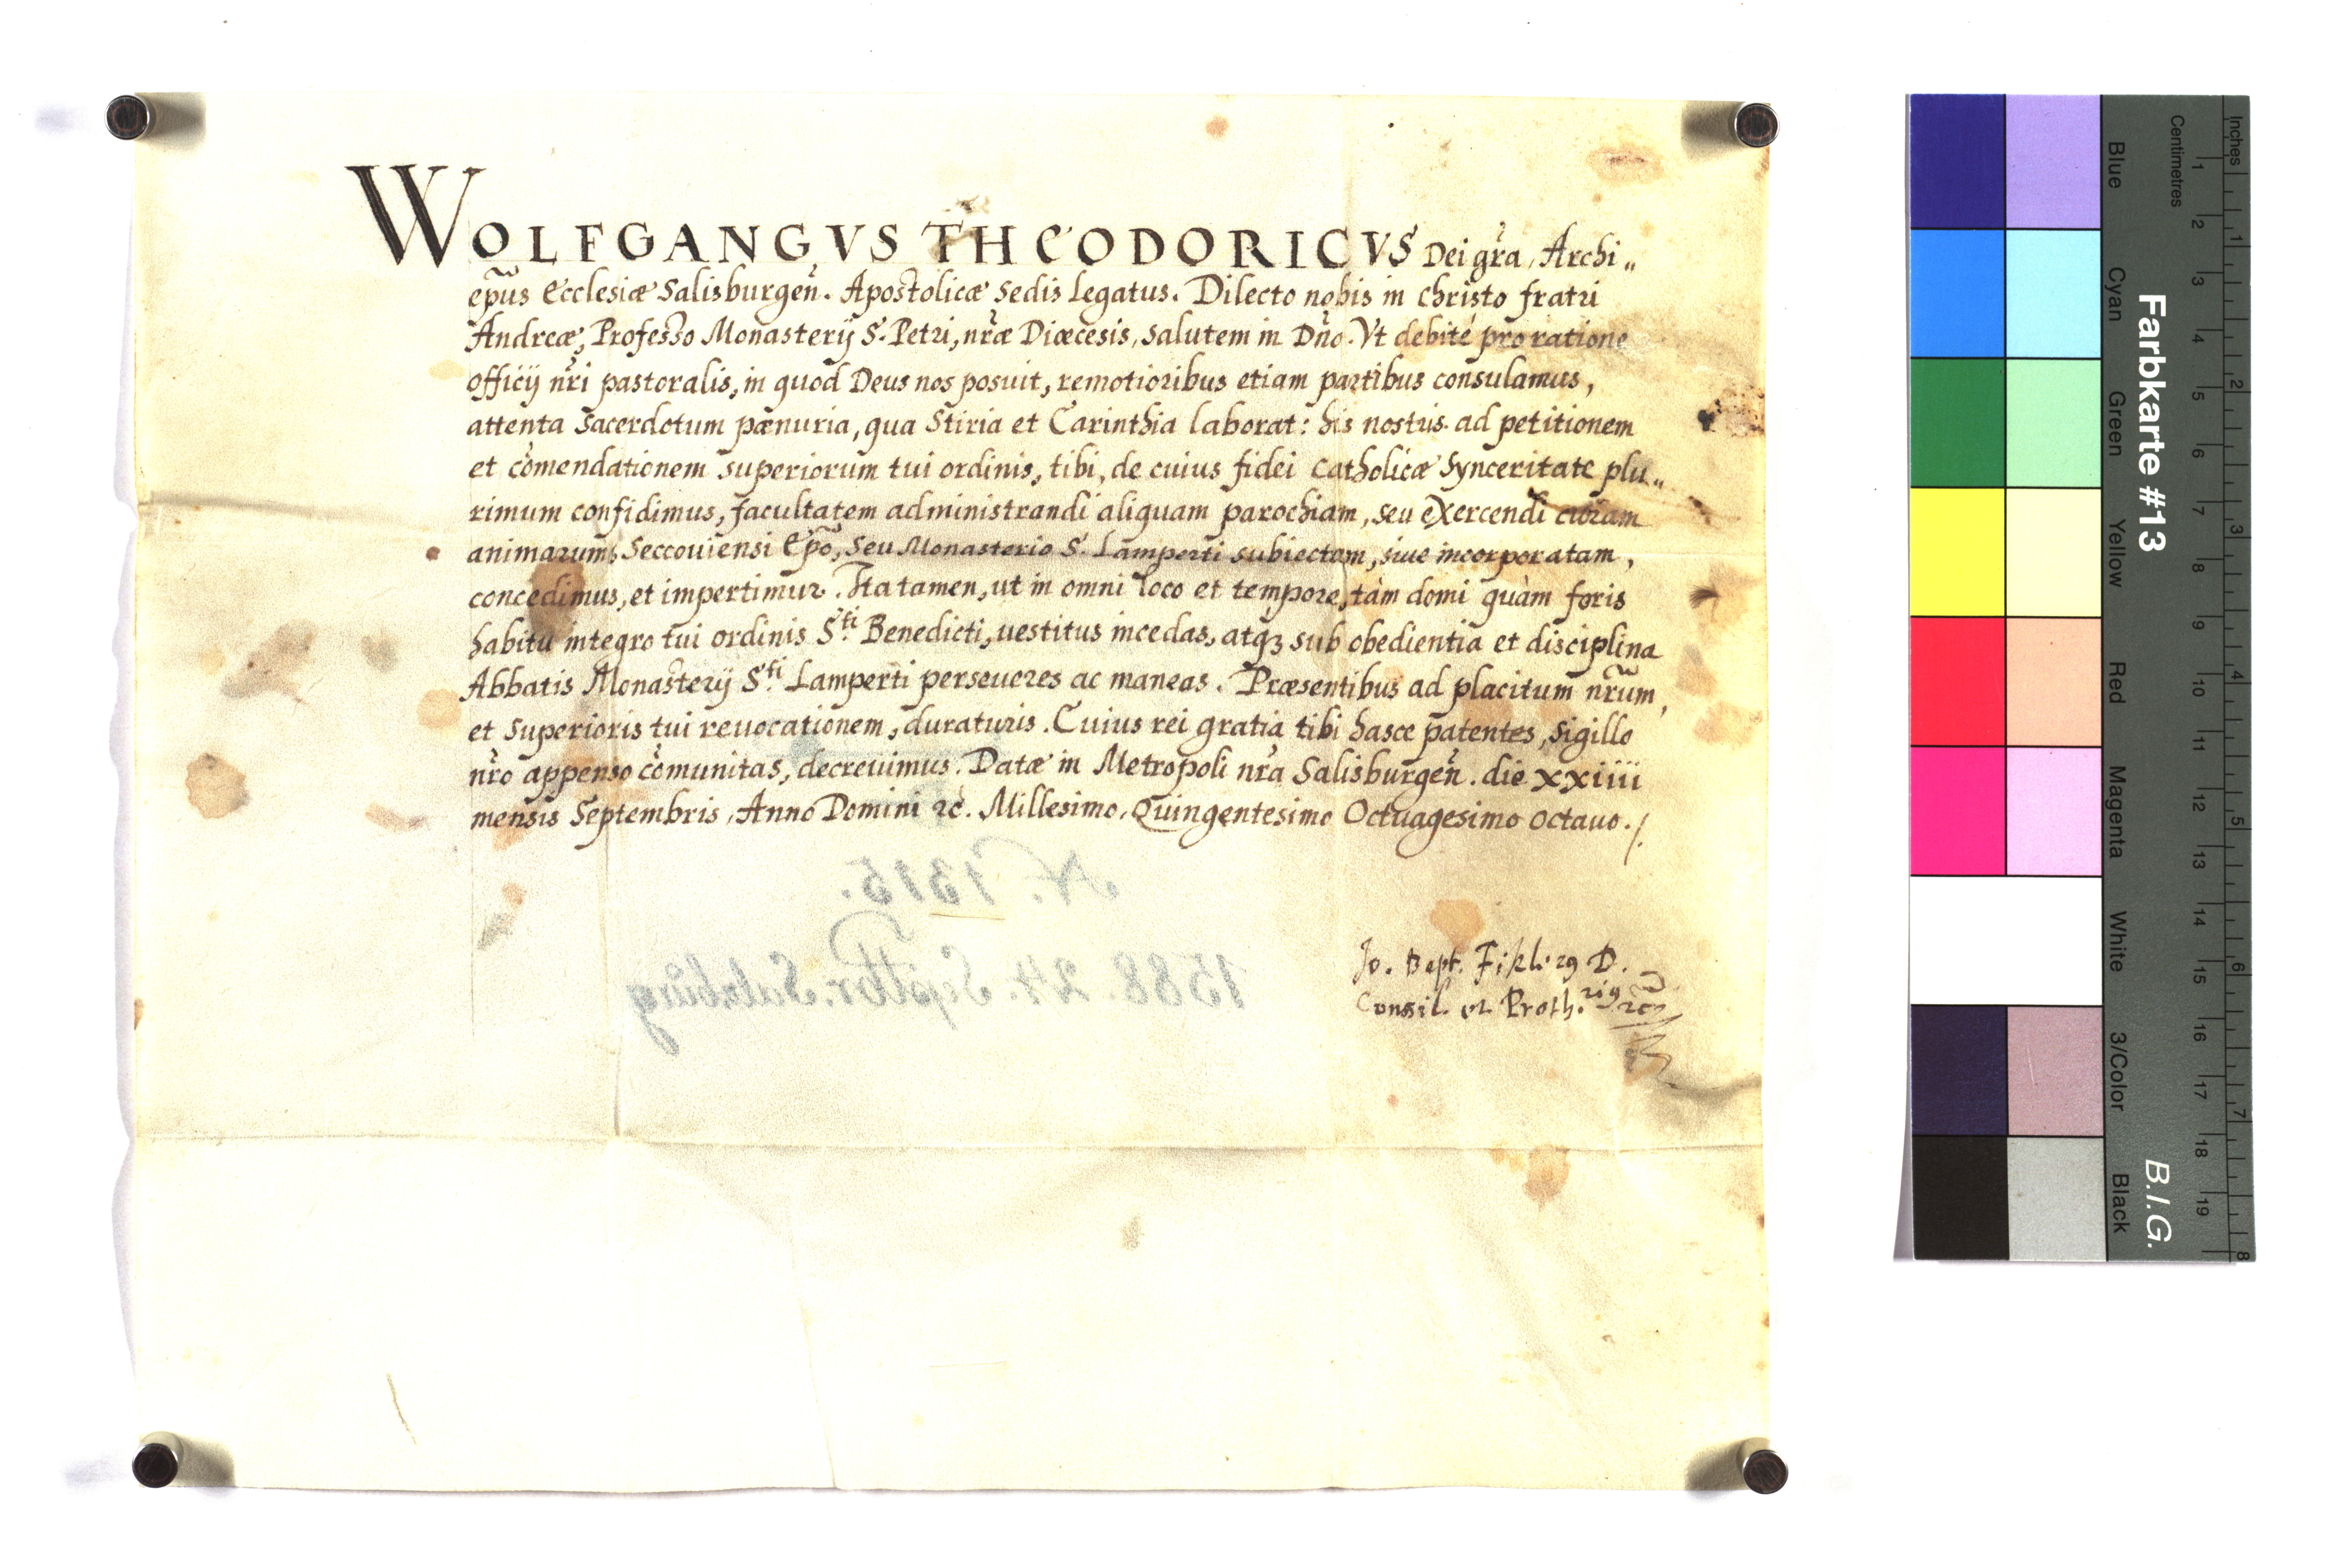 WOLFGANGVS THEODORICVS Dei gr̃a, Archi„
ep̃us Ecclesiæ Salisburgeñ. Apostolicæ Sedis Legatus. Dilecto nobis in Christo fratri
Andreæ, Professo Monasterij S. Petri, nr̃æ Diœcesis, salutem in Dño. Vt debitè pro ratione
officij nr̃i pastoralis, in quod Deus nos posuit, remotioribus etiam partibus consulamus,
attenta Sacerdotum pænuria, qua Stiria et Carinthia laborat: his nostris ad petitionem
et com̃endationem superiorum tui ordinis, tibi, de cuius fidei Catholicæ Synceritate plu„
rimum confidimus, facultatem administrandi aliquam parochiam, seu eXercendi curam
animarum, Seccouiensi Ep̃o, Seu Monasterio S. Lamperti subiectam, siue incorporatam,
concedimus, et impertimur. Ita tamen, ut in omni loco et tempore, tàm domi quàm foris
habitu integro tui ordinis S.ti Benedicti, uestitus incedas, atq3 sub obedientia et disciplina
Abbatis Monasterij S.ti Lamperti perseueres ac maneas. Præsentibus ad placitum nr̃um,
et Superioris tui reuocationem, duraturis. Cuius rei gratia tibi hasce patentes, Sigillo
nr̃o appenso com̃unitas, decreuimus. Datæ in Metropoli nr̃a Salisburgeñ. die xxiiii
mensis Septembris, Anno Domini ꝛc. Millesimo, Quingentesimo Octuagesimo octauo./.
N. 1315.
1588. 24. Septbr. Salzburg
Jo. Bapt. Fikler9 D.
Consil. et Proth.ri9 ꝛc
Inches
Centimetres
1 2 3 4 5 6 7 8 9 10 11 12 13 14 15 16 17 18 19
1 2 3 4 5 6 7 8
Farbkarte #13
B.I.G.
Blue
Cyan
Green
Yellow
Red
Magenta
White
3/Color
Black